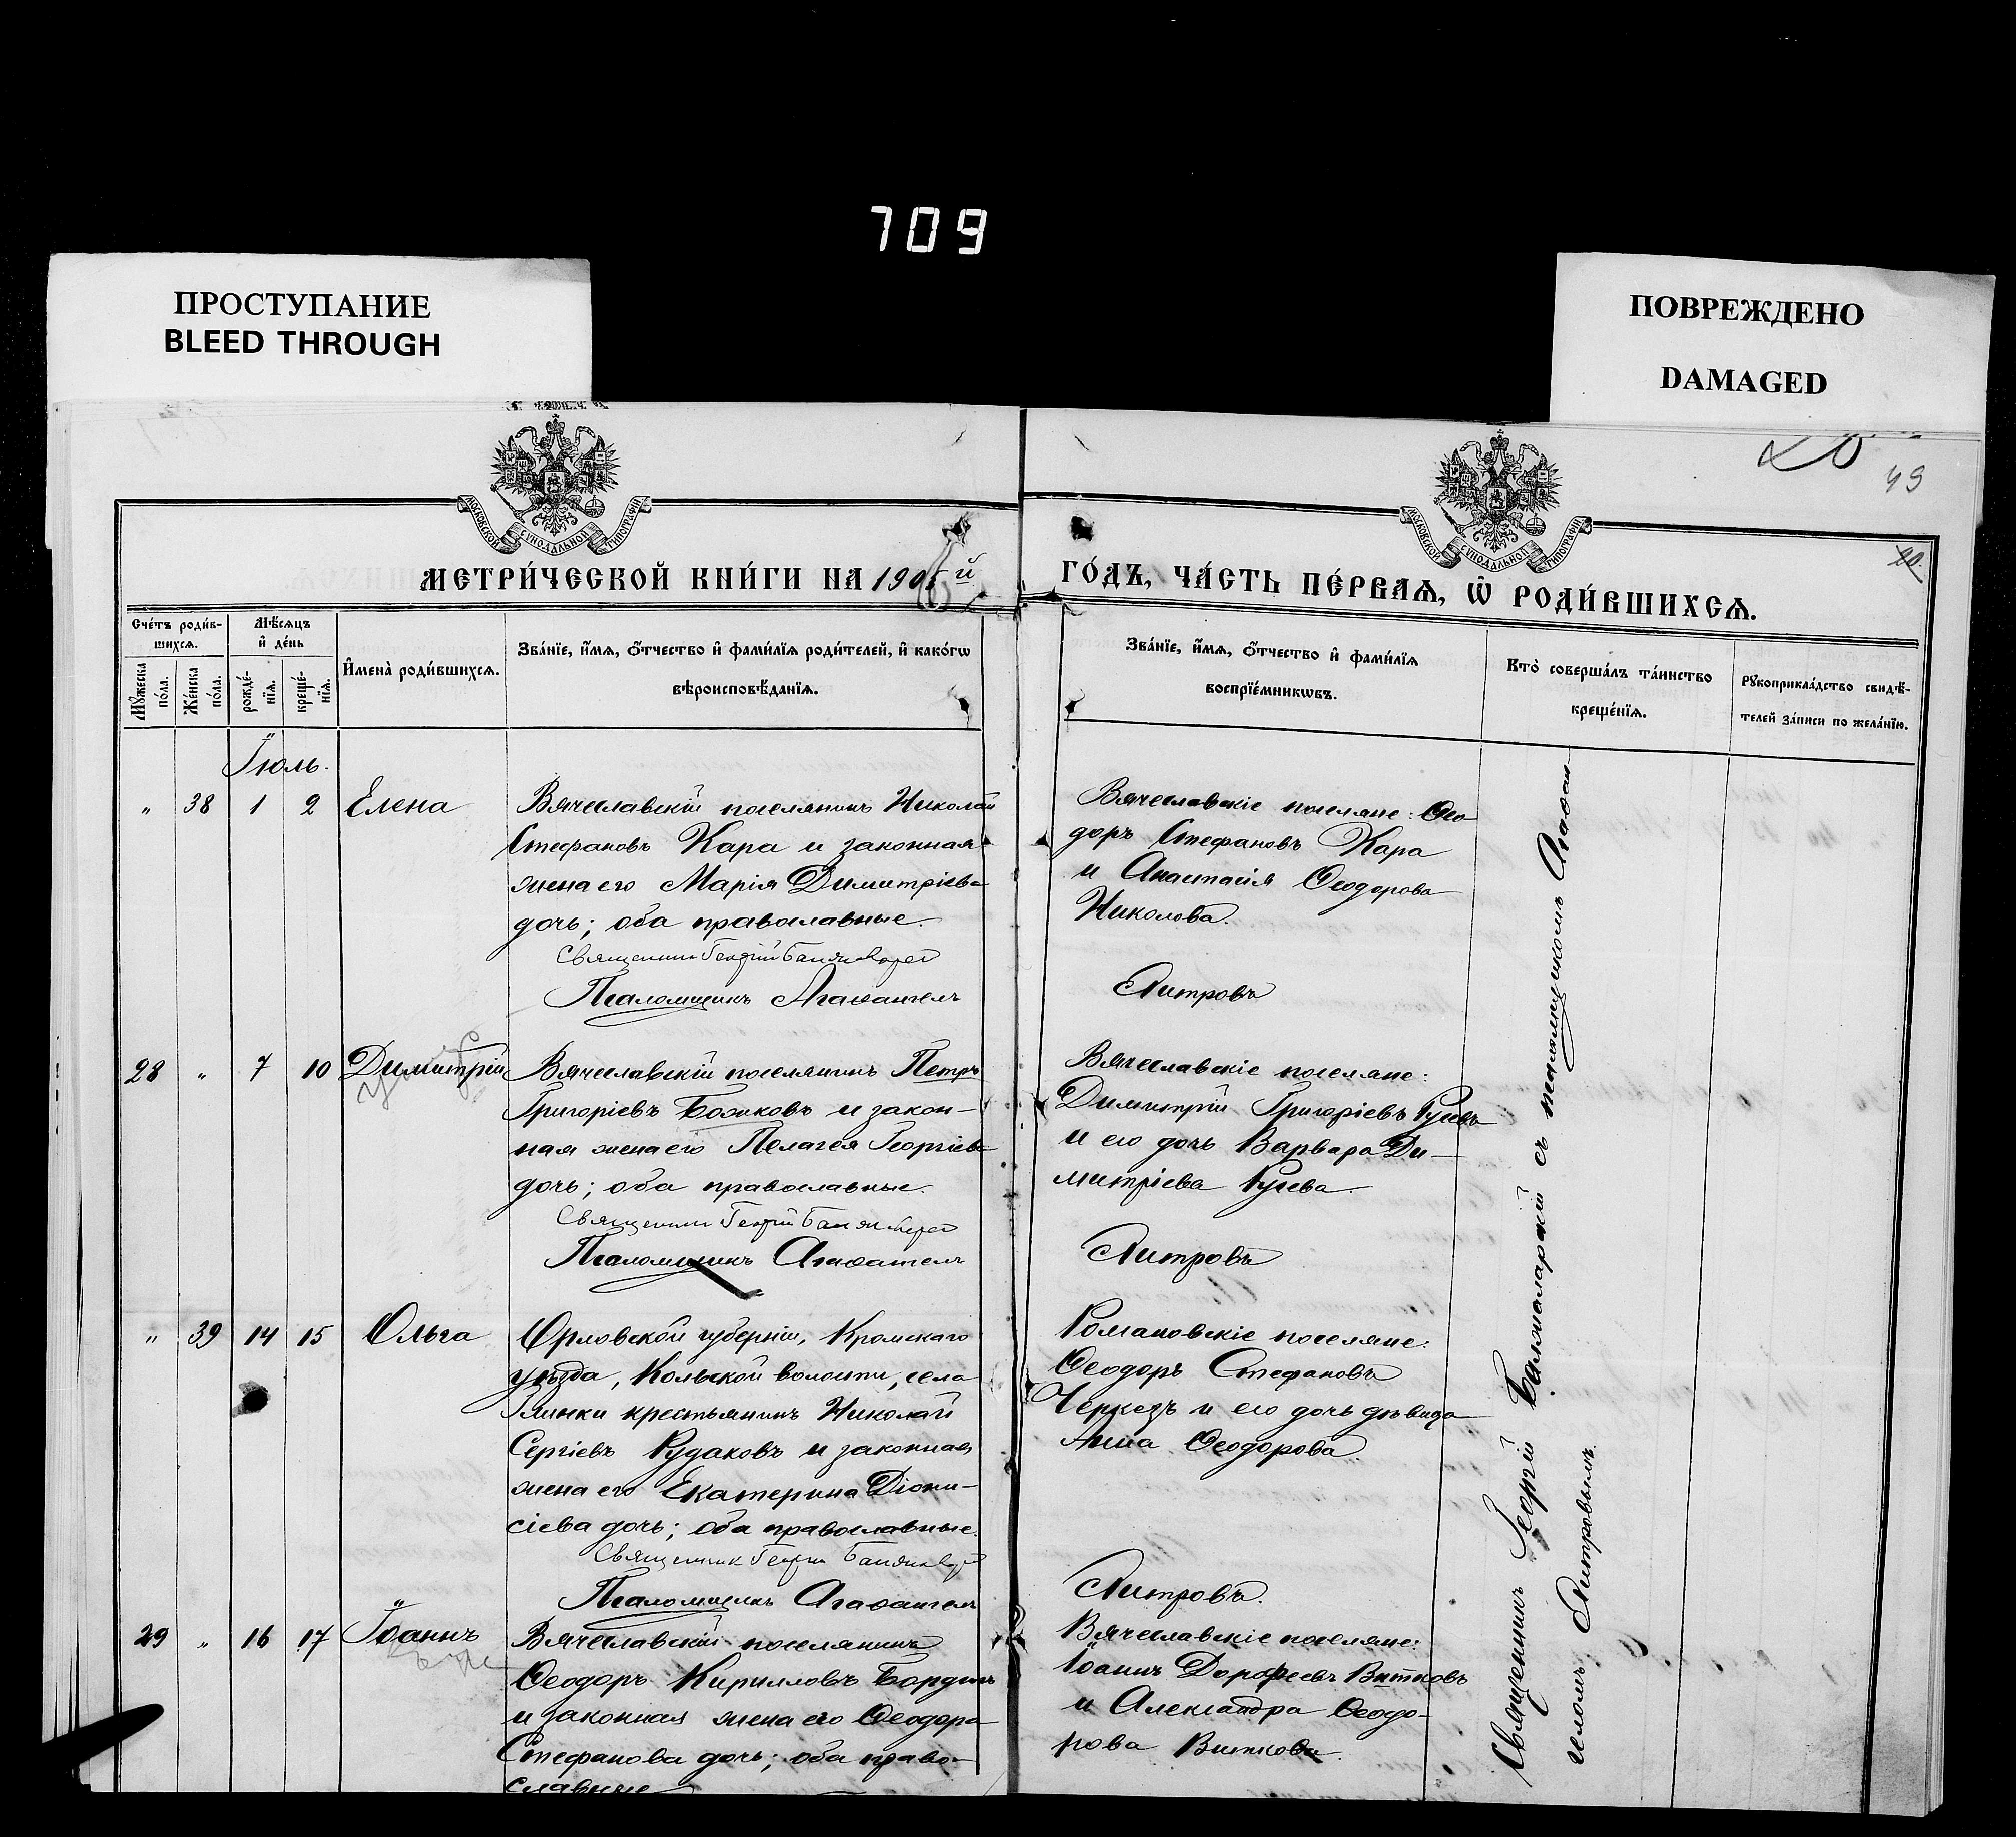 709
ПРОСТУПАНИЕ
BLEED THROUGH
ПОВРЕЖДЕНО
DAMAGED
МОСКОВСКОЙ СУНОДАЛЬНОЙ ТИПОГРАФІИ
МОСКОВСКОЙ СУНОДАЛЬНОЙ ТИПОГРАФІИ
49
20.
МЕТРИ́ЧЕСКОЙ КНИ́ГИ НА 190 й
ГО́ДЪ, ЧА́СТЬ ПЕ́РВАѦ, Ѡ҃ РОДИ́ВШИХСѦ.
Сче́тъ роди́в-
шихсѧ.
Мꙋ́жеска по́ла.
Же́нска по́ла.
Мѣ́сѧцъ
и҆ де́нь
рожде́-
нїѧ.
креще́-
нїѧ.
И҆мена̀ роди́вшихсѧ.
Зва́нїе, и҆́мѧ, ѻ҆́тчество и҆ фами́лїѧ роди́телей, и҆ како́гѡ
вѣроисповѣ́данїѧ.
Зва́нїе, и҆́мѧ, ѻ҆́тчество и҆ фами́лїѧ
воспрїе́мникѡвъ.
Кто̀ соверша́лъ та́инство
креще́нїѧ.
Рꙋкоприкла́дство свидѣ́-
телей за́писи по жела́нїю.
Іюль.
" 38 1 2 Елена
Вячеславскій поселянинъ Николай
Стефановъ Кара и законная
жена его Марія Димитріева
дочь; оба православные.
Священникъ Георгій
Псаломщикъ Агаѳангелъ
Вячеславскіе поселяне: Ѳео-
доръ Стефановъ Кара
и Анастасія Ѳеодорова
Николова.
Питровъ
28 " 7 10 Димитрій
Вячеславскій поселянинъ Петръ
Григоріевъ Божковъ и закон-
ная жена его Пелагея Георгіева
дочь; оба православные.
Священникъ Георгій
Псаломщикъ Агаѳангелъ
Вячеславскіе поселяне:
Димитрій Григоріевъ Русевъ
и его дочь Варвара Ди-
митріева Русева.
Питровъ
" 39 14 15 Ольга
Орловской губерніи, Кромскаго
уѣзда, Кольской волости, села
Глинки крестьянинъ Николай
Сергіевъ Рудаковъ и законная
жена его Екатерина Діони-
сіева дочь; оба православные.
Священникъ Георгій
Псаломщикъ Агаѳангелъ
Романовскіе поселяне:
Ѳеодоръ Стефановъ
Черкезъ и его дочь дѣвица
Анна Ѳеодорова.
Питровъ.
29 " 16 17 Іоаннъ
Вячеславскій поселянинъ
Ѳеодоръ Кирилловъ
и законная жена его Ѳеодора
Стефанова дочь; оба право-
славные
Вячеславскіе поселяне:
Іоаннъ Дороѳеевъ Витковъ
и Александра Ѳеодо-
рова Виткова.
Священникъ Георгій съ псаломщикомъ Агаѳан-
геломъ Питровымъ.